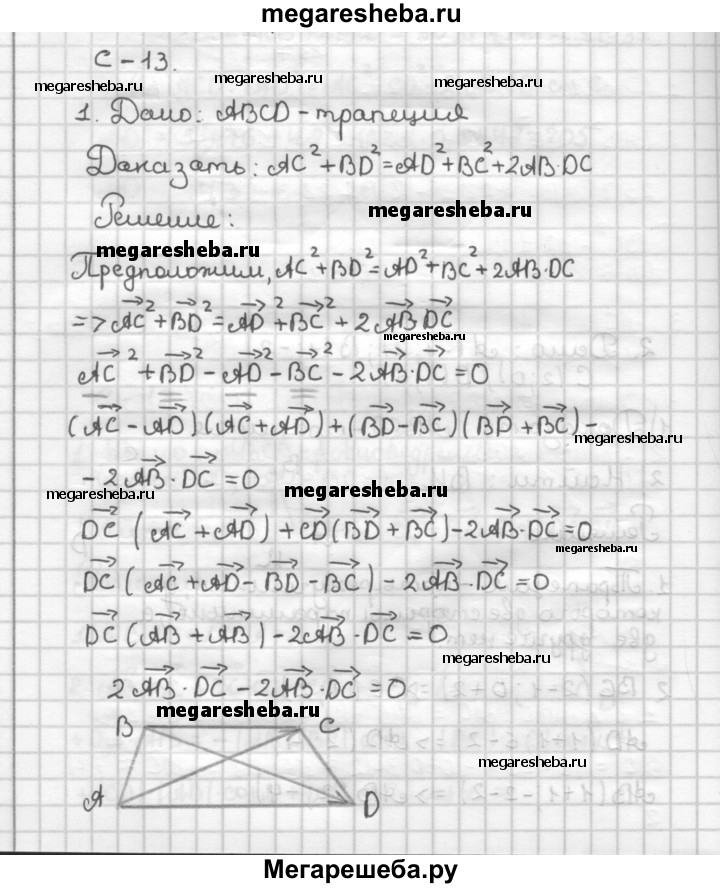 megaresheba.ru
С-13.
megaresheba.ru megaresheba.ru megaresheba.ru
1. Дано: ABCD - трапеция
Доказать: AC² + BD² = AD² + BC² + 2AB·DC
Решение:
megaresheba.ru
megaresheba.ru
Предположим, AC² + BD² = AD² + BC² + 2AB·DC
=> AC² + BD² = AD² + BC² + 2AB·DC
megaresheba.ru
AC² + BD² - AD² - BC² - 2AB·DC = 0
(AC - AD)(AC + AD) + (BD - BC)(BD + BC) -
megaresheba.ru
- 2AB·DC = 0
megaresheba.ru megaresheba.ru
DC(AC + AD) + CD(BD + BC) - 2AB·DC = 0
megaresheba.ru
DC(AC + AD - BD - BC) - 2AB·DC = 0
DC(AB + AB) - 2AB·DC = 0
megaresheba.ru
2AB·DC - 2AB·DC = 0
megaresheba.ru
B C
megaresheba.ru
A D
Мегарешеба.ру